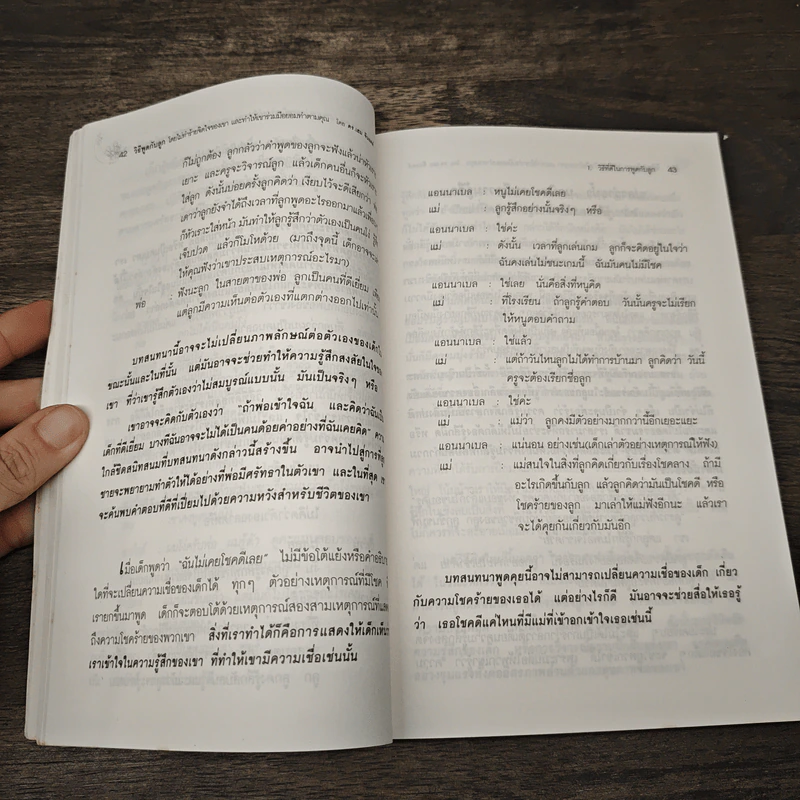 42 วิธีพูดกับลูก โดยไม่ทำร้ายจิตใจของเขา และทำให้เขาร่วมมือยอมทำตามคุณ โดย ดร.
ก็ไม่ถูกต้อง ลูกกลัวว่าคำพูดของลูกจะฟังแล้วน่าหัว
เยาะ และครูจะวิจารณ์ลูก แล้วเด็กคนอื่นก็จะหัวเราะ
ใส่ลูก ดังนั้นบ่อยครั้งลูกคิดว่า เงียบไว้จะดีเสียกว่า
เดาว่าลูกยังจำได้ถึงเวลาที่ลูกพูดอะไรออกมาแล้วเพื่อน
ก็หัวเราะใส่หน้า มันทำให้ลูกรู้สึกว่าตัวเองเป็นคนโง่
เจ็บปวด แล้วก็โมโหด้วย (มาถึงจุดนี้ เด็กอาจจะ
ให้คุณฟังว่าเขาประสบเหตุการณ์อะไรมา)
พ่อ : ฟังนะลูก ในสายตาของพ่อ ลูกเป็นคนที่ดีเยี่ยม
แต่ลูกมีความเห็นต่อตัวเองที่แตกต่างออกไปเท่านั้น
บทสนทนานี้อาจจะไม่เปลี่ยนภาพลักษณ์ต่อตัวเองของเด็ก
ขณะนั้นและในที่นั้น แต่มันอาจจะช่วยทำให้ความรู้สึกสงสัยในใจของ
เขา ที่ว่าเขารู้สึกตัวเองว่าไม่สมบูรณ์แบบนั้น มันเป็นจริงๆ หรือ
เขาอาจจะคิดกับตัวเองว่า "ถ้าพ่อเข้าใจฉัน และคิดว่าฉันเป็น
เด็กที่ดีเยี่ยม บางทีฉันอาจจะไม่ได้เป็นคนด้อยค่าอย่างที่ฉันเคยคิด"
ใกล้ชิดสนิทสนมที่บทสนทนาดังกล่าวนี้สร้างขึ้น อาจนำไปสู่การที่
ชายจะพยายามทำตัวให้ได้อย่างที่พ่อมีศรัทธาในตัวเขา และในที่สุด
จะค้นพบคำตอบที่ดีที่เปี่ยมไปด้วยความหวังสำหรับชีวิตของเขา
เมื่อเด็กพูดว่า "ฉันไม่เคยโชคดีเลย" ไม่มีข้อโต้แย้งหรือคำอธิบาย
ใดที่จะเปลี่ยนความเชื่อของเด็กได้ ทุกๆ ตัวอย่างเหตุการณ์ที่มีโชค
เรายกขึ้นมาพูด เด็กก็จะตอบโต้ด้วยเหตุการณ์สองสามเหตุการณ์ที่แสดง
ถึงความโชคร้ายของพวกเขา สิ่งที่เราทำได้ก็คือการแสดงให้เด็กเห็นว่า
เราเข้าใจในความรู้สึกของเขา ที่ทำให้เขามีความเชื่อเช่นนั้น
วิธีที่ดีในการพูดกับลูก 43
แอนนาเบล : หนูไม่เคยโชคดีเลย
แม่ : ลูกรู้สึกอย่างนั้นจริงๆ หรือ
แอนนาเบล : ใช่ค่ะ
แม่ : ดังนั้น เวลาที่ลูกเล่นเกม ลูกก็จะคิดอยู่ในใจว่า
ฉันคงเล่นไม่ชนะเกมนี้ ฉันมันคนไม่มีโชค
แอนนาเบล : ใช่เลย นั่นคือสิ่งที่หนูคิด
แม่ : ที่โรงเรียน ถ้าลูกรู้คำตอบ วันนั้นครูจะไม่เรียก
ให้หนูตอบคำถาม
แอนนาเบล : ใช่แล้ว
แม่ : แต่ถ้าวันไหนลูกไม่ได้ทำการบ้านมา ลูกคิดว่า วันนี้
ครูจะต้องเรียกชื่อลูก
แอนนาเบล : ใช่ค่ะ
แม่ : แม่ว่า ลูกคงมีตัวอย่างมากกว่านี้อีกเยอะแยะ
แอนนาเบล : แน่นอน อย่างเช่น(เด็กเล่าตัวอย่างเหตุการณ์ให้ฟัง)
แม่ : แม่สนใจในสิ่งที่ลูกคิดเกี่ยวกับเรื่องโชคลาง ถ้ามี
อะไรเกิดขึ้นกับลูก แล้วลูกคิดว่ามันเป็นโชคดี หรือ
โชคร้ายของลูก มาเล่าให้แม่ฟังอีกนะ แล้วเรา
จะได้คุยกันเกี่ยวกับมันอีก
บทสนทนาพูดคุยนี้อาจไม่สามารถเปลี่ยนความเชื่อของเด็ก เกี่ยว
กับความโชคร้ายของเธอได้ แต่อย่างไรก็ดี มันอาจจะช่วยสื่อให้เธอรู้
ว่า เธอโชคดีแค่ไหนที่มีแม่ที่เข้าอกเข้าใจเธอเช่นนี้